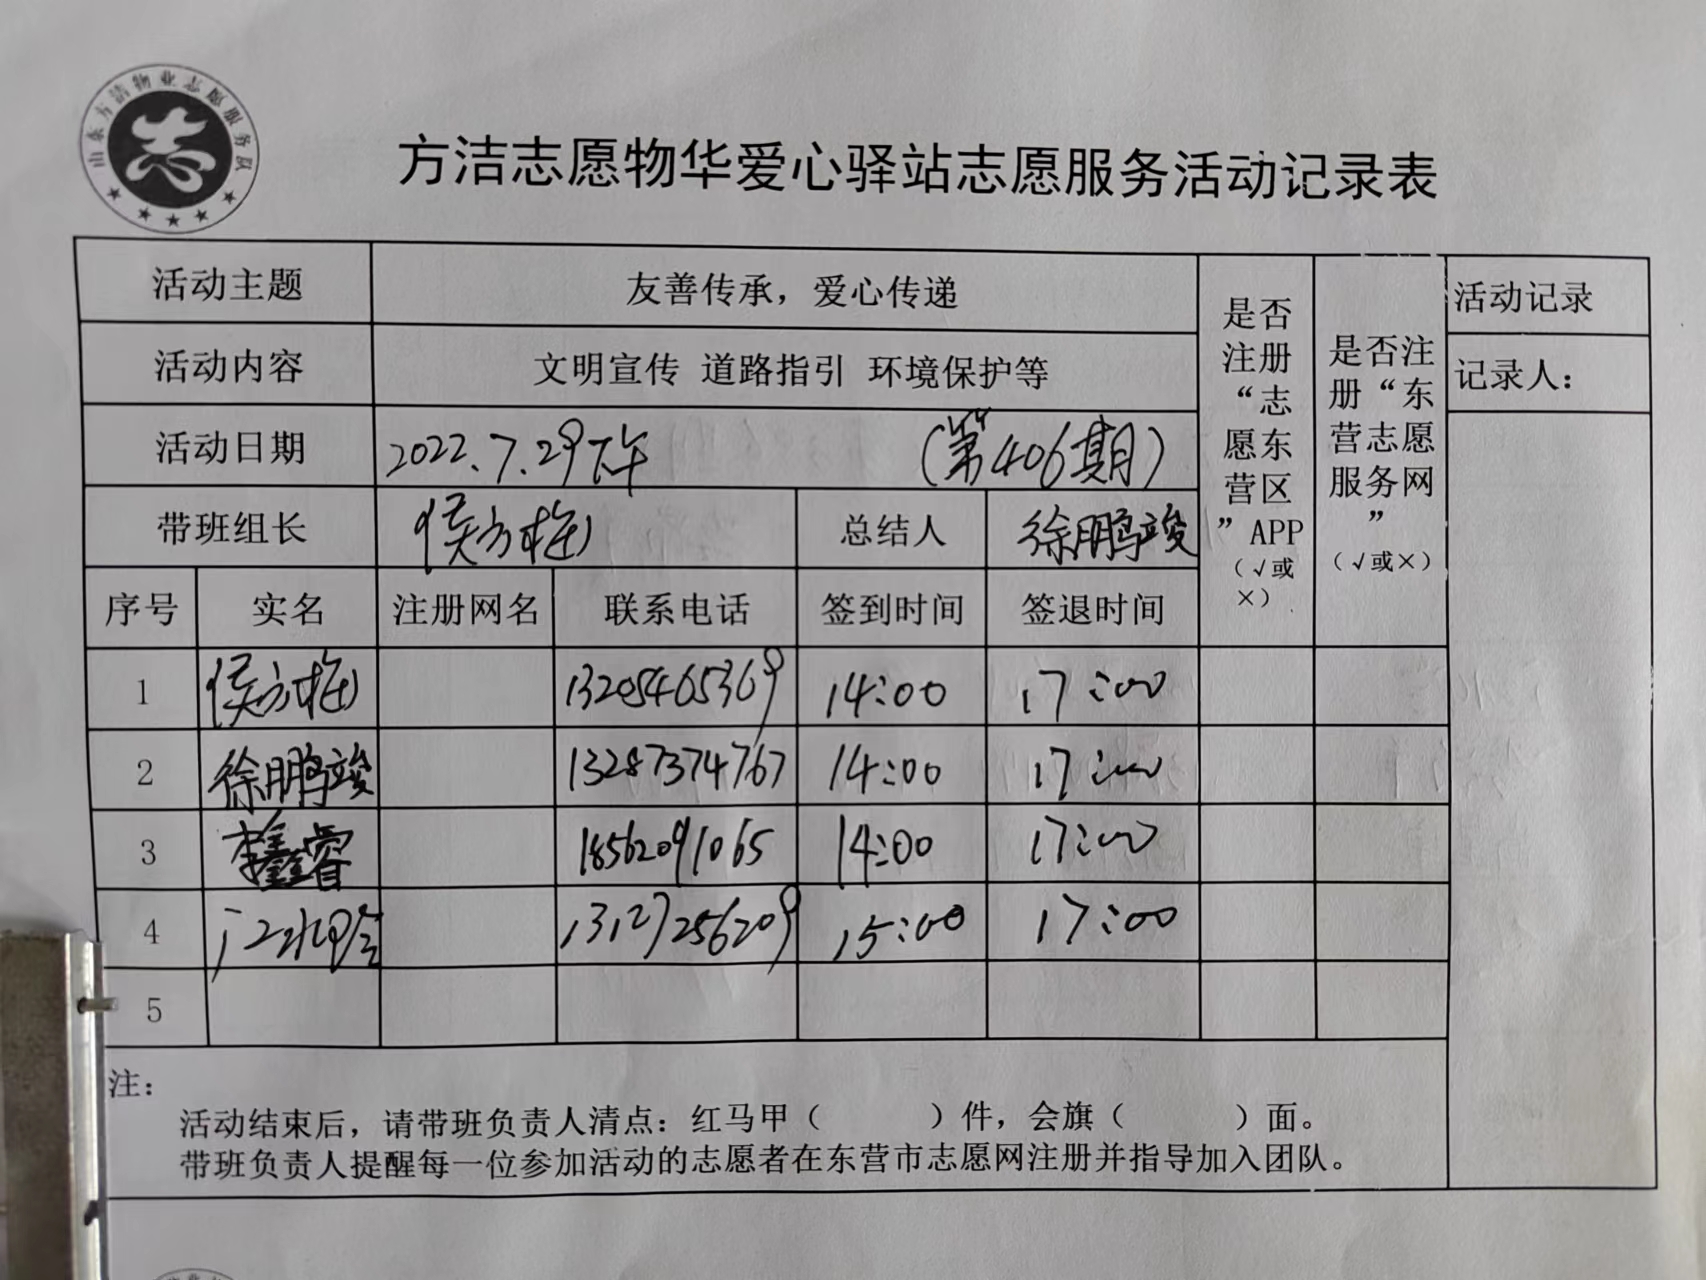 山东方洁物业志愿服务队
志
方洁志愿物华爱心驿站志愿服务活动记录表
活动主题 友善传承，爱心传递
活动内容 文明宣传 道路指引 环境保护等
活动日期 2022.7.29下午 （第406期）
带班组长 侯方梅 总结人 徐鹏竣
是否
注册
“志
愿东
营区
”APP
（√或
×）
是否注
册“东
营志愿
服务网
”
（√或×）
活动记录
记录人：
序号 实名 注册网名 联系电话 签到时间 签退时间
1 侯方梅 13205465369 14:00 17:00
2 徐鹏竣 13287374767 14:00 17:00
3 李鑫睿 18562091065 14:00 17:00
4 13127256209 15:00 17:00
5
注：
活动结束后，请带班负责人清点：红马甲（ ）件，会旗（ ）面。
带班负责人提醒每一位参加活动的志愿者在东营市志愿网注册并指导加入团队。